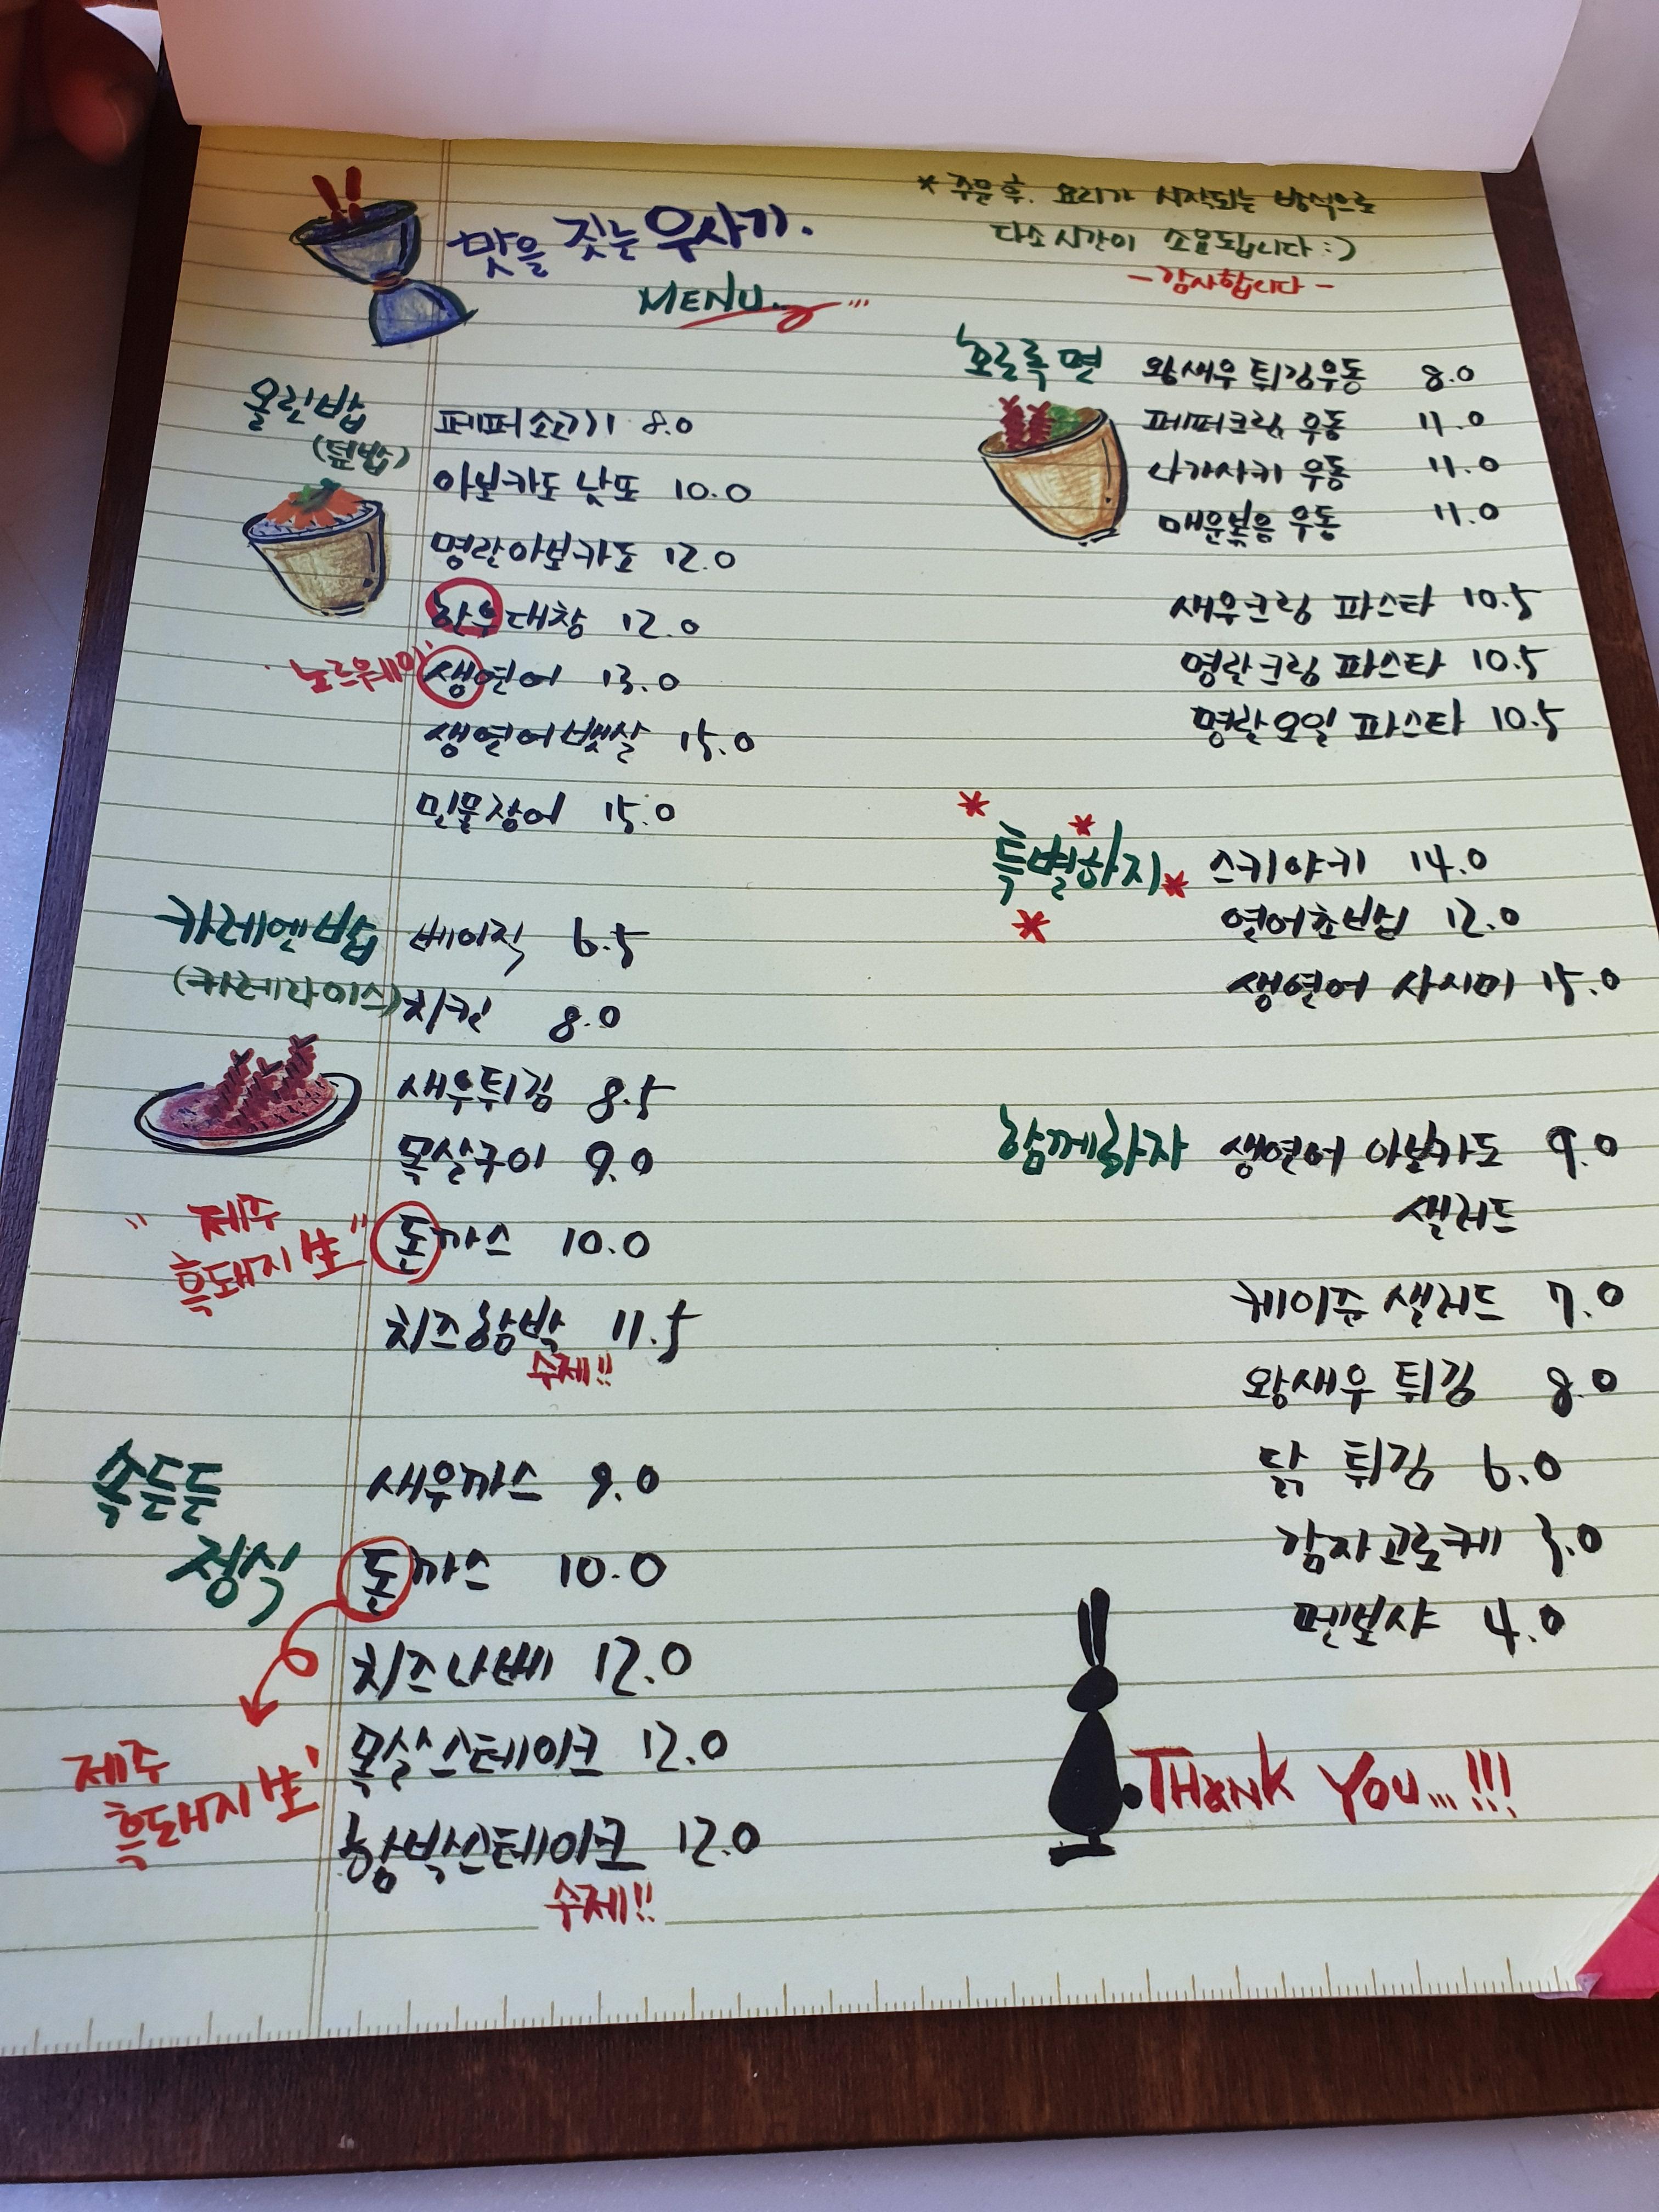 맛을 짓는 우사기.
MENU...
* 주문 후. 요리가 시작되는 방식으로
다소 시간이 소요됩니다 :)
- 감사합니다 -
올린밥
(덮밥)
페퍼소고기 8.0
아보카도 낫또 10.0
명란아보카도 12.0
한우대창 12.0
노르웨이 생연어 13.0
생연어뱃살 15.0
민물장어 15.0
카레엔밥
(카레라이스)
베이직 6.5
치킨 8.0
새우튀김 8.5
목살구이 9.0
"제주
흑돼지 生"
돈까스 10.0
치즈함박 11.5
수제!!
속든든
정식
새우까스 9.0
돈까스 10.0
치즈나베 12.0
목살스테이크 12.0
제주
흑돼지 生'
함박스테이크 12.0
수제!!
호로록면
왕새우 튀김우동 8.0
페퍼크림 우동 11.0
나가사키 우동 11.0
매운볶음 우동 11.0
새우크림 파스타 10.5
명란크림 파스타 10.5
명란오일 파스타 10.5
특별하지
스키야키 14.0
연어초밥 12.0
생연어 사시미 15.0
함께하자
생연어 아보카도 9.0
샐러드
케이준 샐러드 7.0
왕새우 튀김 8.0
닭 튀김 6.0
감자고로케 3.0
멘보샤 4.0
THANK YOU...!!!